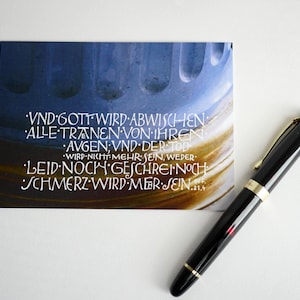 ·VND·GOTT·WIRD·ABWISCHEN·
·ALLE·TRÄNEN·VON·IHREN·
AVGEN; VND·DER·TOD·
WIRD·NICHT·MEHR·SEIN, WEDER·
·LEID·NOCH·GESCHREI·NOCH·
·SCHMERZ·WIRD·MEHR·SEIN.